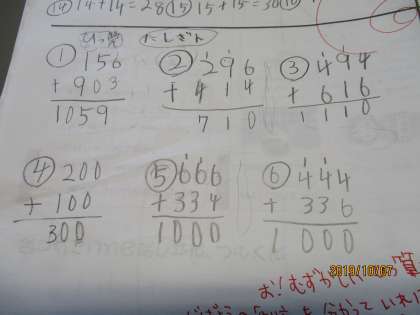 ⑭14+14=28⑮15+15=30⑯
ひっ算 たしざん
① 156
+ 903
1059
② 296
+ 414
710
③ 494
+ 616
1110
④ 200
+ 100
300
⑤ 666
+ 334
1000
⑥ 444
+ 336
1000
お!むずかしい
2019/10/07